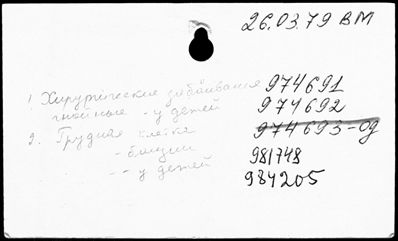 26.03.79 ВМ
1. Хирургические заболевания 974691
гнойные - у детей 974692
2. Грудная клетка 974693-од
- болезни 981748
- " - у детей 984205